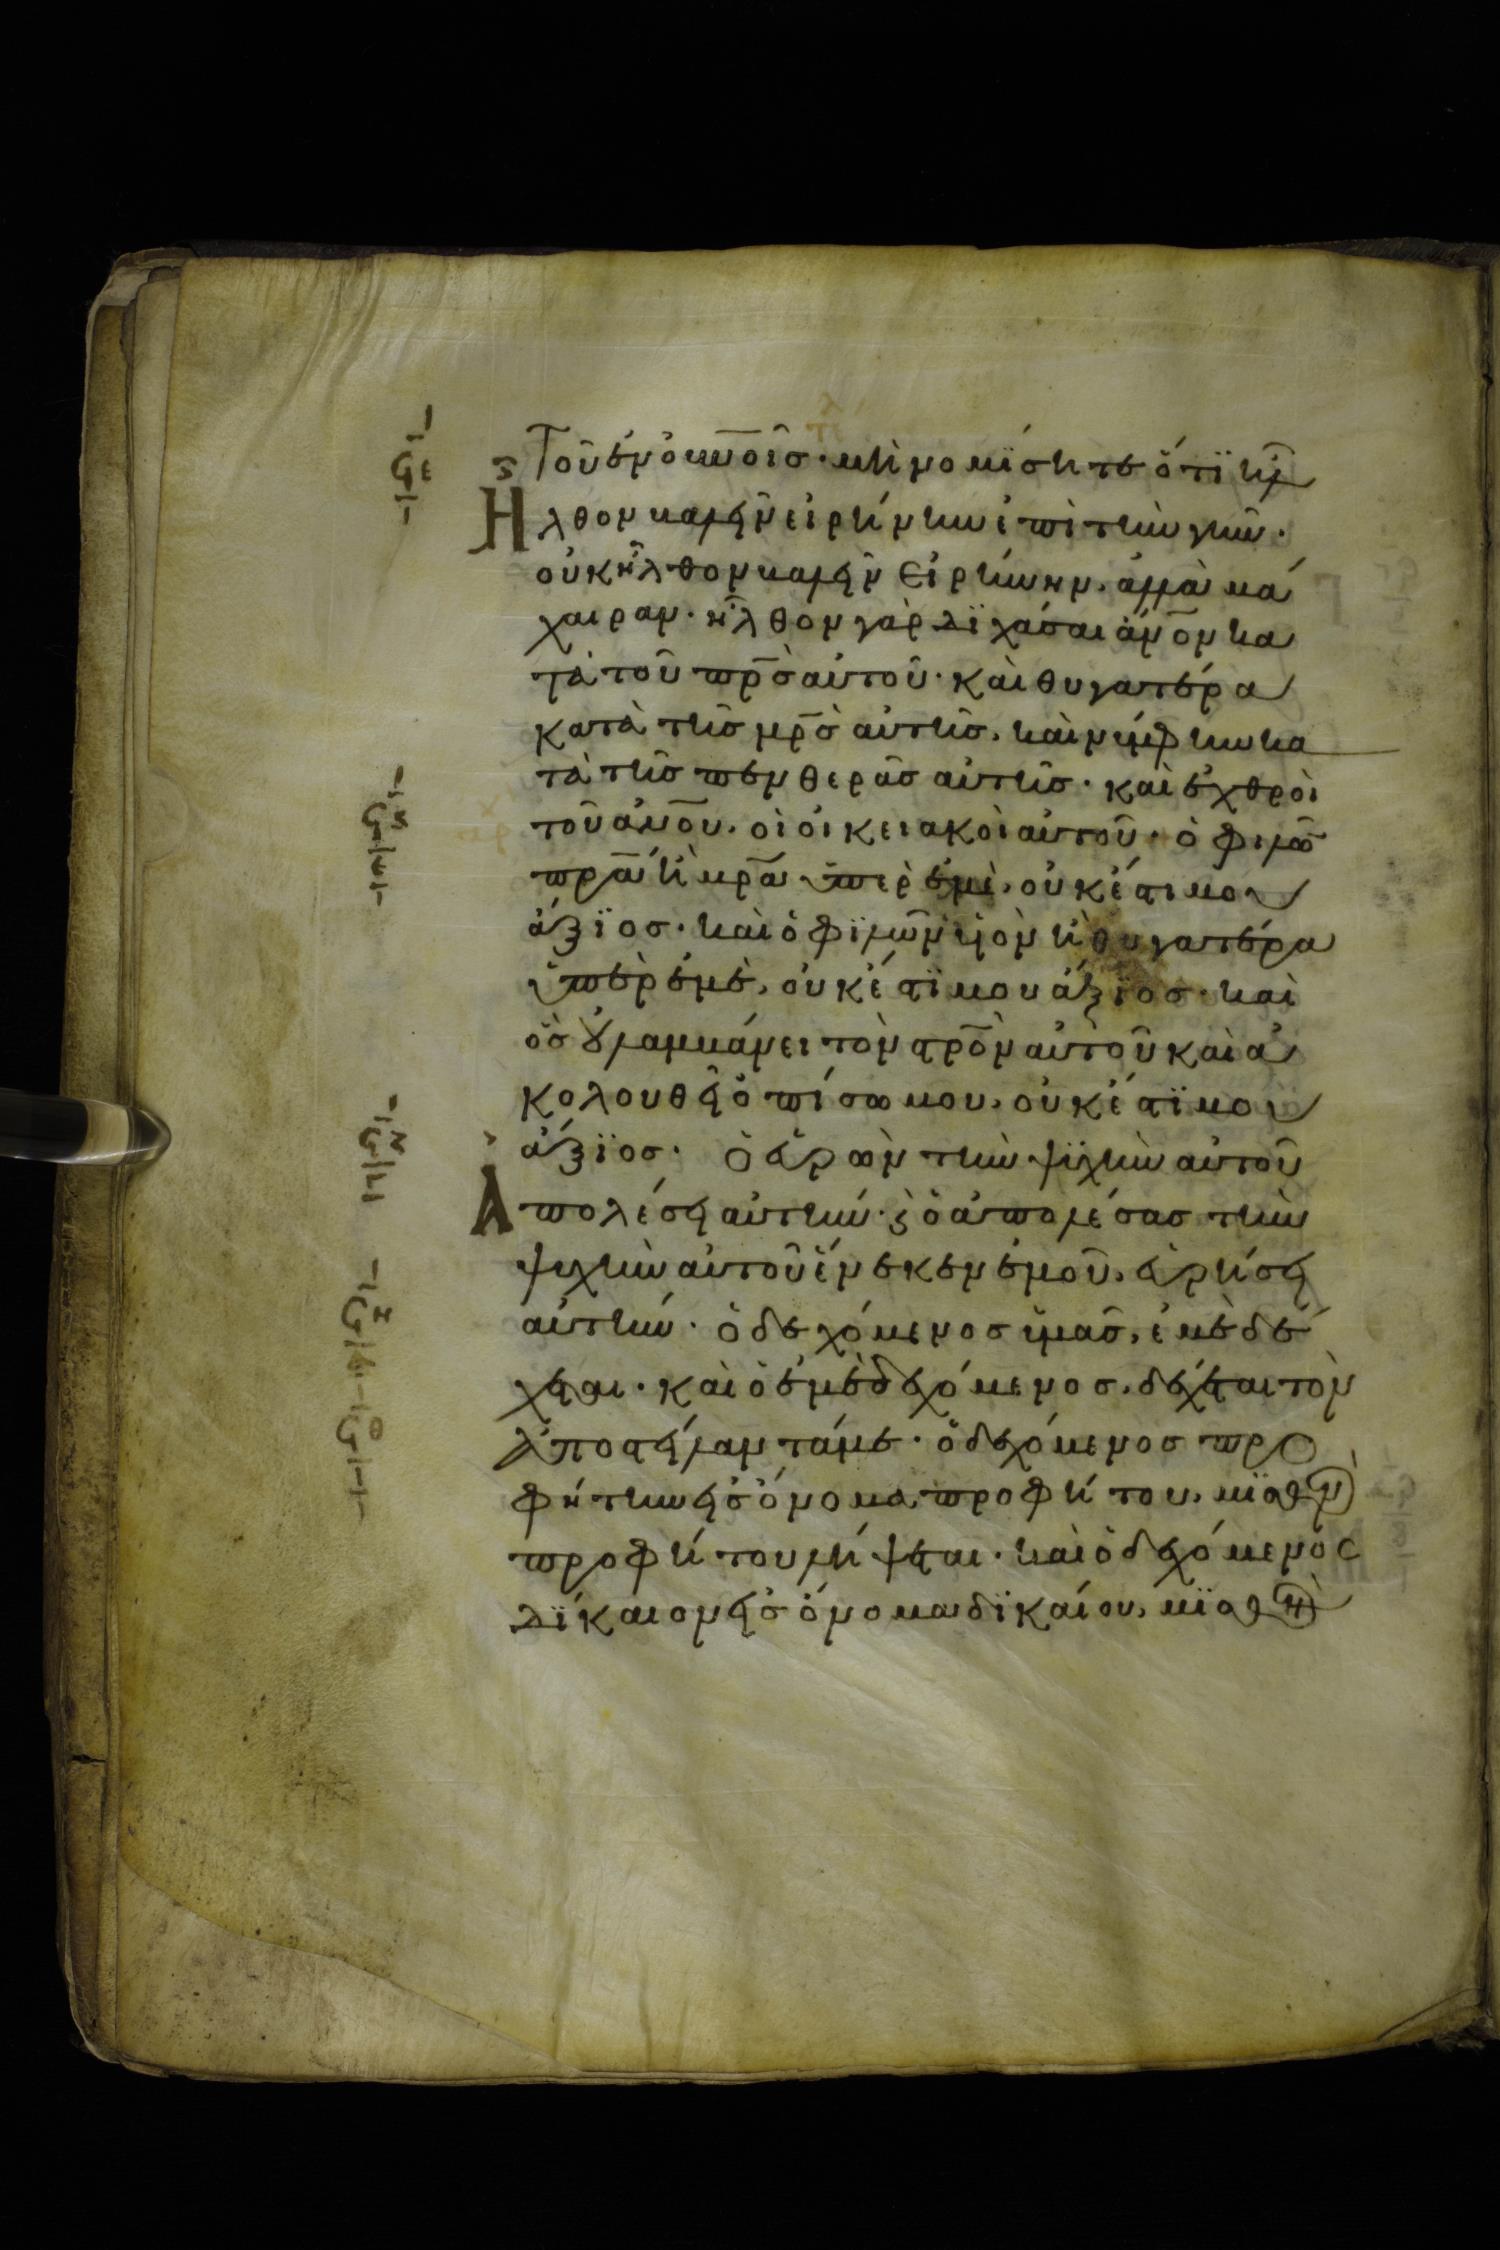 τοῦ ἐν ο̅υ̅ν̅οῖσ· μὴ νομΐσητε ὅτϊ ἦ
λθον βαλεῖν εἰρήνην ἐπὶ τὴν γῆν·
οὐκ ἦλθον βαλεῖν εἰρήνην, ἀλλὰ μά
χαιραν· ἦλθον γὰρ δϊχάσαι ἀν̅ο̅ν κα
τὰ τοῦ π̅ρ̅σ̅ αὐτοῦ· καὶ θυγατέρα
κατὰ τῆσ μ̅ρ̅σ̅ αὐτῆσ, καὶ νύμφην κα
τὰ τῆσ πενθερᾶσ αὐτῆσ· καὶ ἐχθροὶ
τοῦ ἀν̅ο̅υ̅, οἱ οἰκειακοὶ αὐτοῦ· ὁ φιλῶν
π̅ρ̅α̅ ἢ μ̅ρ̅α̅ ὑπὲρ ἐμὲ, οὐκ ἔστι μου
ἄξϊοσ· καὶ ὁ φϊλῶν υἱὸν ἢ θυγατέρα
ὑπὲρ ἐμὲ, οὐκ ἔστϊ μου ἄξϊοσ· καὶ
ὃσ οὐ λαμβάνει τὸν στ̅ρ̅ο̅ν αὐτοῦ καὶ ἀ
κολουθεῖ ὀπίσω μου, οὐκ ἔστϊ μου
ἄξϊοσ· ὁ εὑρὼν τὴν ψϋχὴν αὐτοῦ
ἀπολέσει αὐτήν· ϗ ὁ ἀπολέσασ τὴν
ψυχὴν αὐτοῦ ἕνεκεν ἐμοῦ, εὑρήσει
αὐτήν· ὁ δεχόμενοσ ὑμᾶσ, ἐμὲ δέ
χεται· καὶ ὁ ἐμὲ δεχόμενοσ, δέχεται τὸν
ἀποστείλαντά με· ὁ δεχόμενοσ προ
φήτην εἰσ ὄνομα προφήτου, μϊσθὸν
προφήτου λήψεται· καὶ ὁ δεχόμενος
δϊκαιον εἰσ ὄνομα δϊκαίου, μϊσθὸν